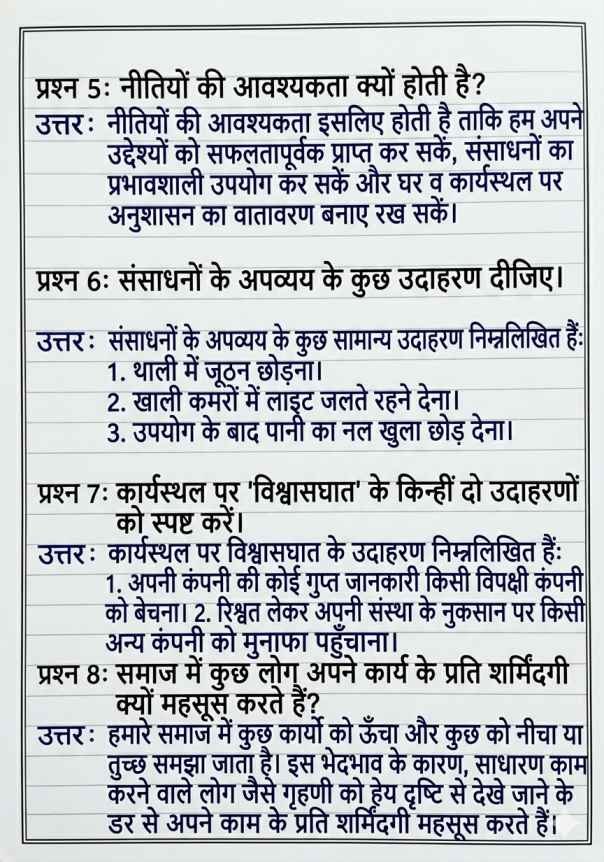 प्रश्न 5: नीतियों की आवश्यकता क्यों होती है?
उत्तर: नीतियों की आवश्यकता इसलिए होती है ताकि हम अपने
उद्देश्यों को सफलतापूर्वक प्राप्त कर सकें, संसाधनों का
प्रभावशाली उपयोग कर सकें और घर व कार्यस्थल पर
अनुशासन का वातावरण बनाए रख सकें।
प्रश्न 6: संसाधनों के अपव्यय के कुछ उदाहरण दीजिए।
उत्तर: संसाधनों के अपव्यय के कुछ सामान्य उदाहरण निम्नलिखित हैं:
1. थाली में जूठन छोड़ना।
2. खाली कमरों में लाइट जलते रहने देना।
3. उपयोग के बाद पानी का नल खुला छोड़ देना।
प्रश्न 7: कार्यस्थल पर 'विश्वासघात' के किन्हीं दो उदाहरणों
को स्पष्ट करें।
उत्तर: कार्यस्थल पर विश्वासघात के उदाहरण निम्नलिखित हैं:
1. अपनी कंपनी की कोई गुप्त जानकारी किसी विपक्षी कंपनी
को बेचना। 2. रिश्वत लेकर अपनी संस्था के नुकसान पर किसी
अन्य कंपनी को मुनाफा पहुँचाना।
प्रश्न 8: समाज में कुछ लोग अपने कार्य के प्रति शर्मिंदगी
क्यों महसूस करते हैं?
उत्तर: हमारे समाज में कुछ कार्यो को ऊँचा और कुछ को नीचा या
तुच्छ समझा जाता है। इस भेदभाव के कारण, साधारण काम
करने वाले लोग जैसे गृहणी को हेय दृष्टि से देखे जाने के
डर से अपने काम के प्रति शर्मिंदगी महसूस करते हैं।